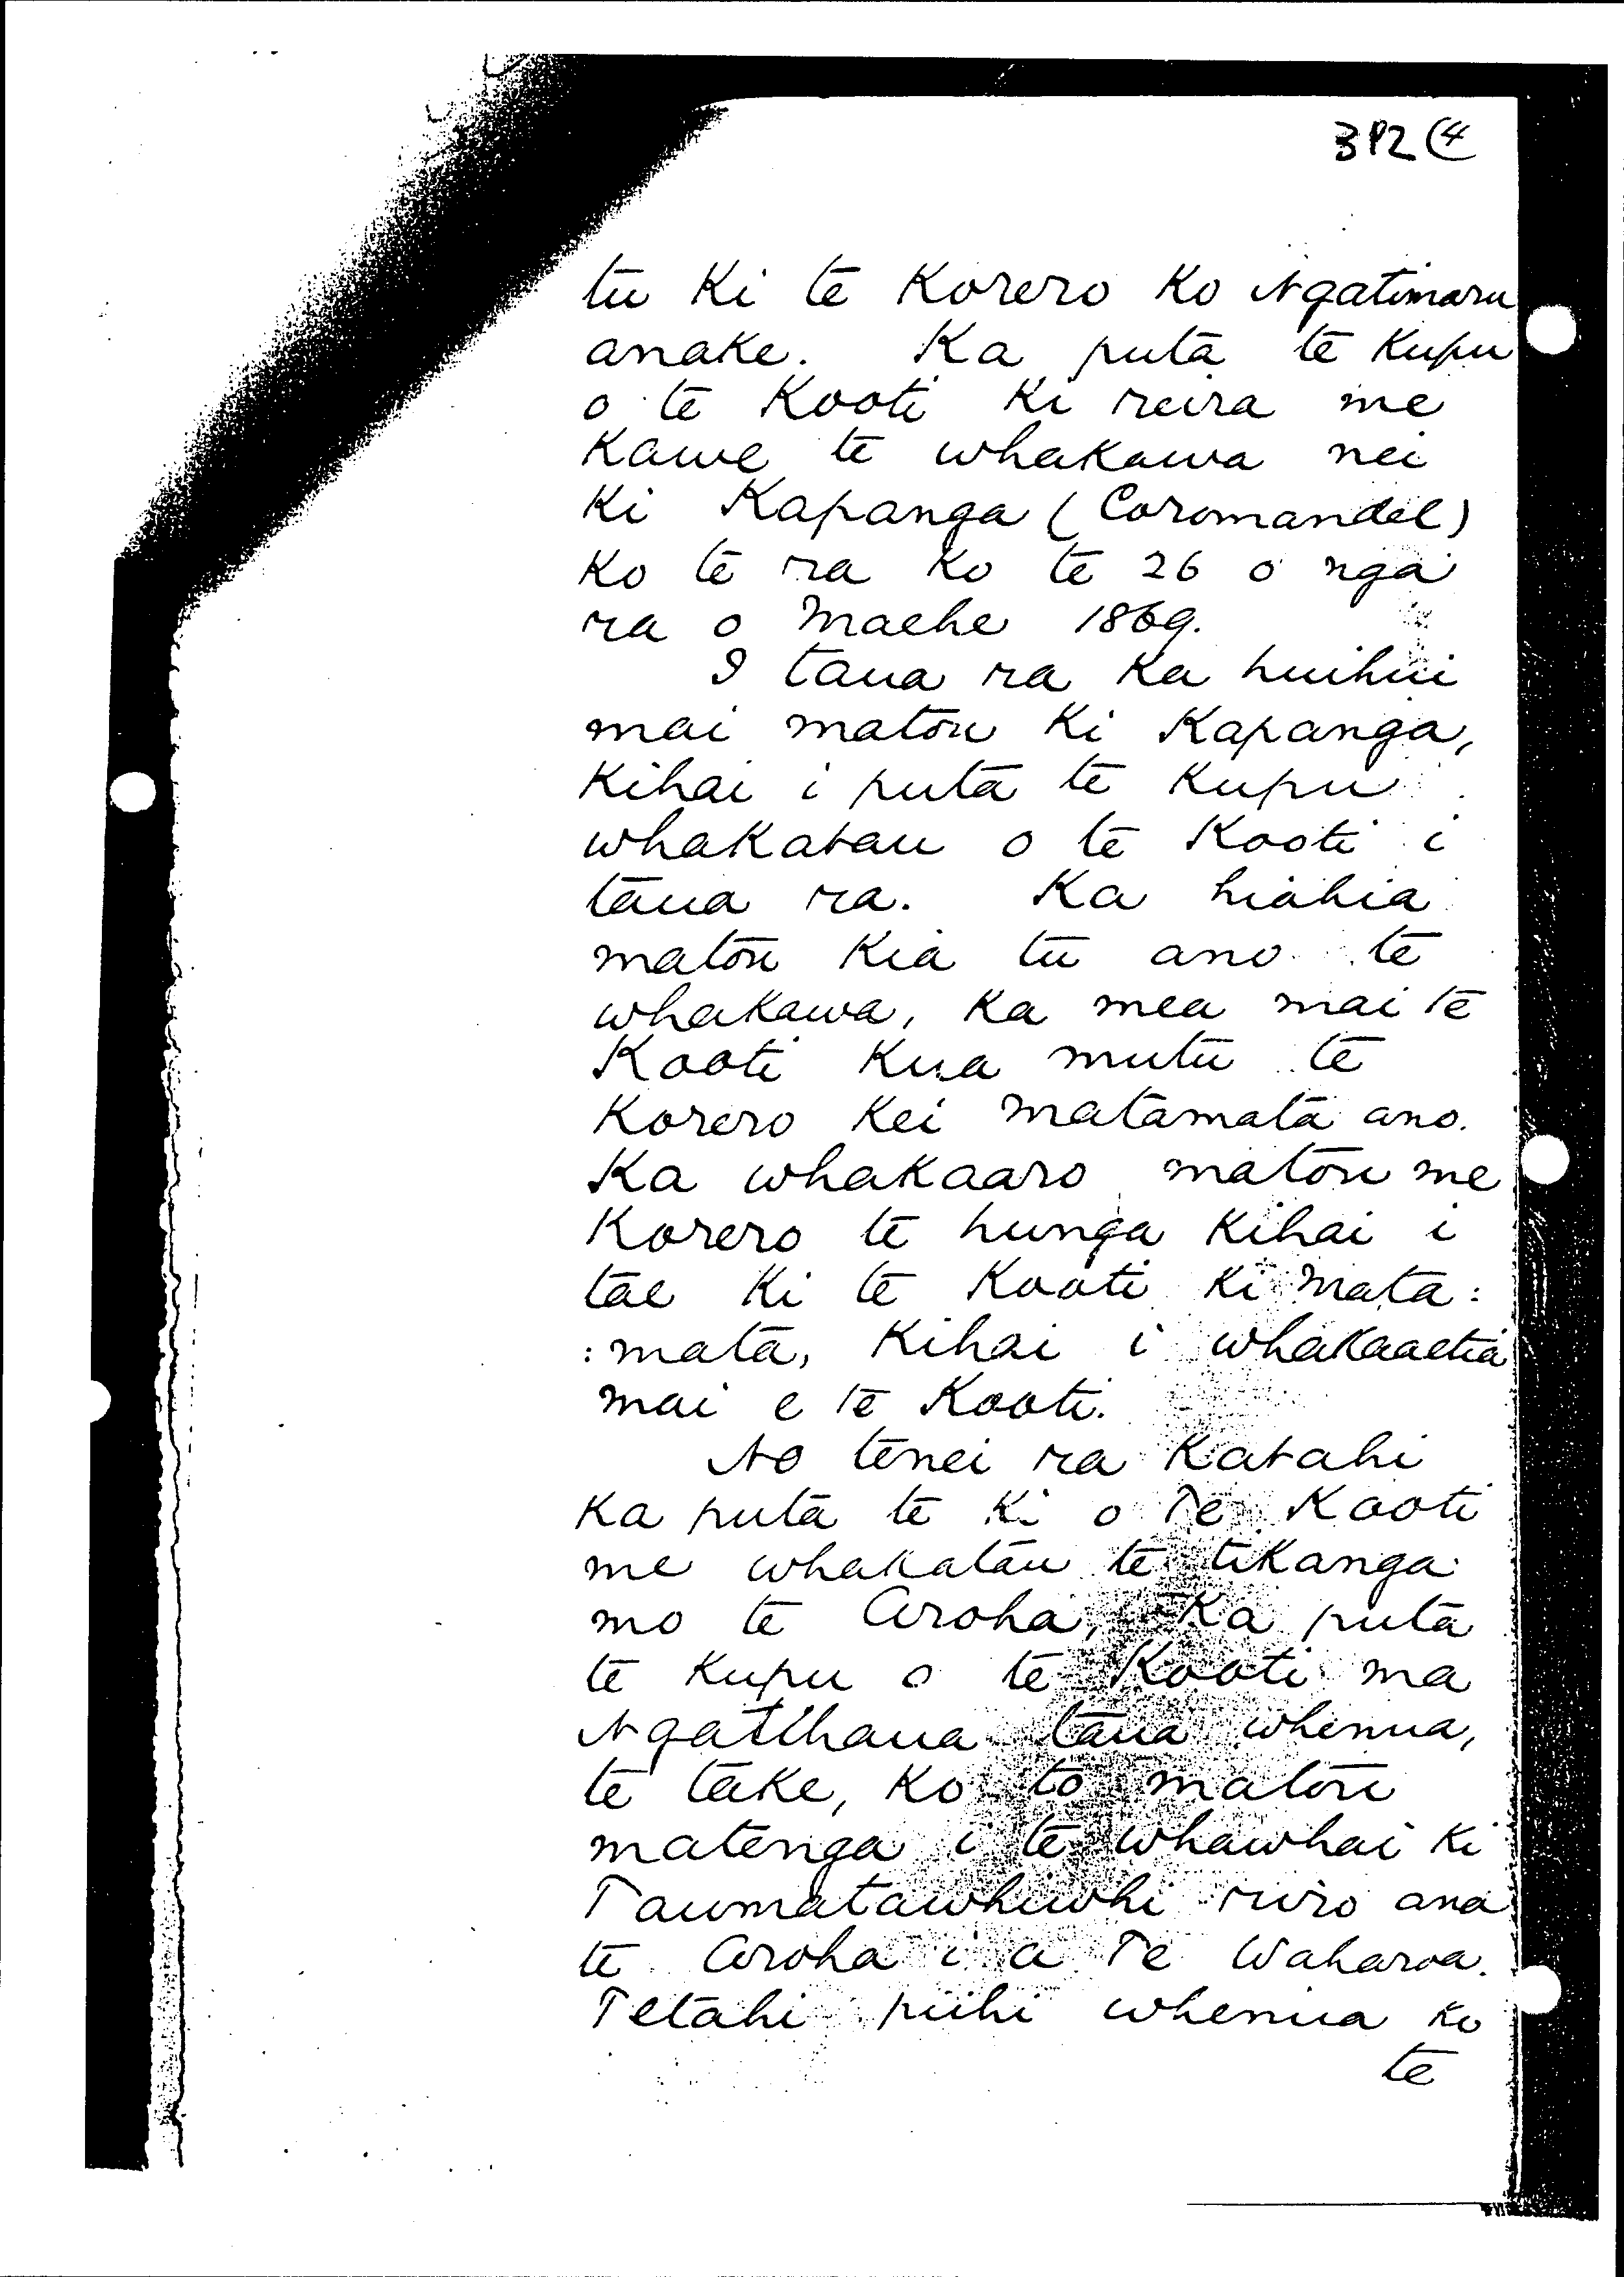 3P2 (4
tu ki te korero ko Ngatimaru
anake. Ka puta te kupu
o te Kooti ki reira me
kawe te whakawa nei
ki Kapanga (Coromandel)
ko te ra ko te 26 o nga
ra o Maehe 1869.
I taua ra ka huihui
mai matou ki Kapanga,
kihai i puta te kupu
whakatau o te Kooti i
taua ra. Ka hiahia
matou kia tu ano te
whakawa, ka mea mai te
Kooti kua mutu te
korero kei Matamata ano.
Ka whakaaro matou me
korero te hunga kihai i
tae ki te Kooti ki Mata:
:mata, kihai i whakaaetia
mai e te Kooti.
No tenei ra katahi
ka puta te ki o Te Kooti
me whakatau te tikanga
mo te Aroha, Ka puta
te kupu o te Kooti ma
Ngatihaua taua whenua,
te take, ko to matou
matenga i te whawhai ki
Taumatawhiwhi riro ana
te Aroha i a Te Waharoa.
Tetahi piihi whenua ko
te